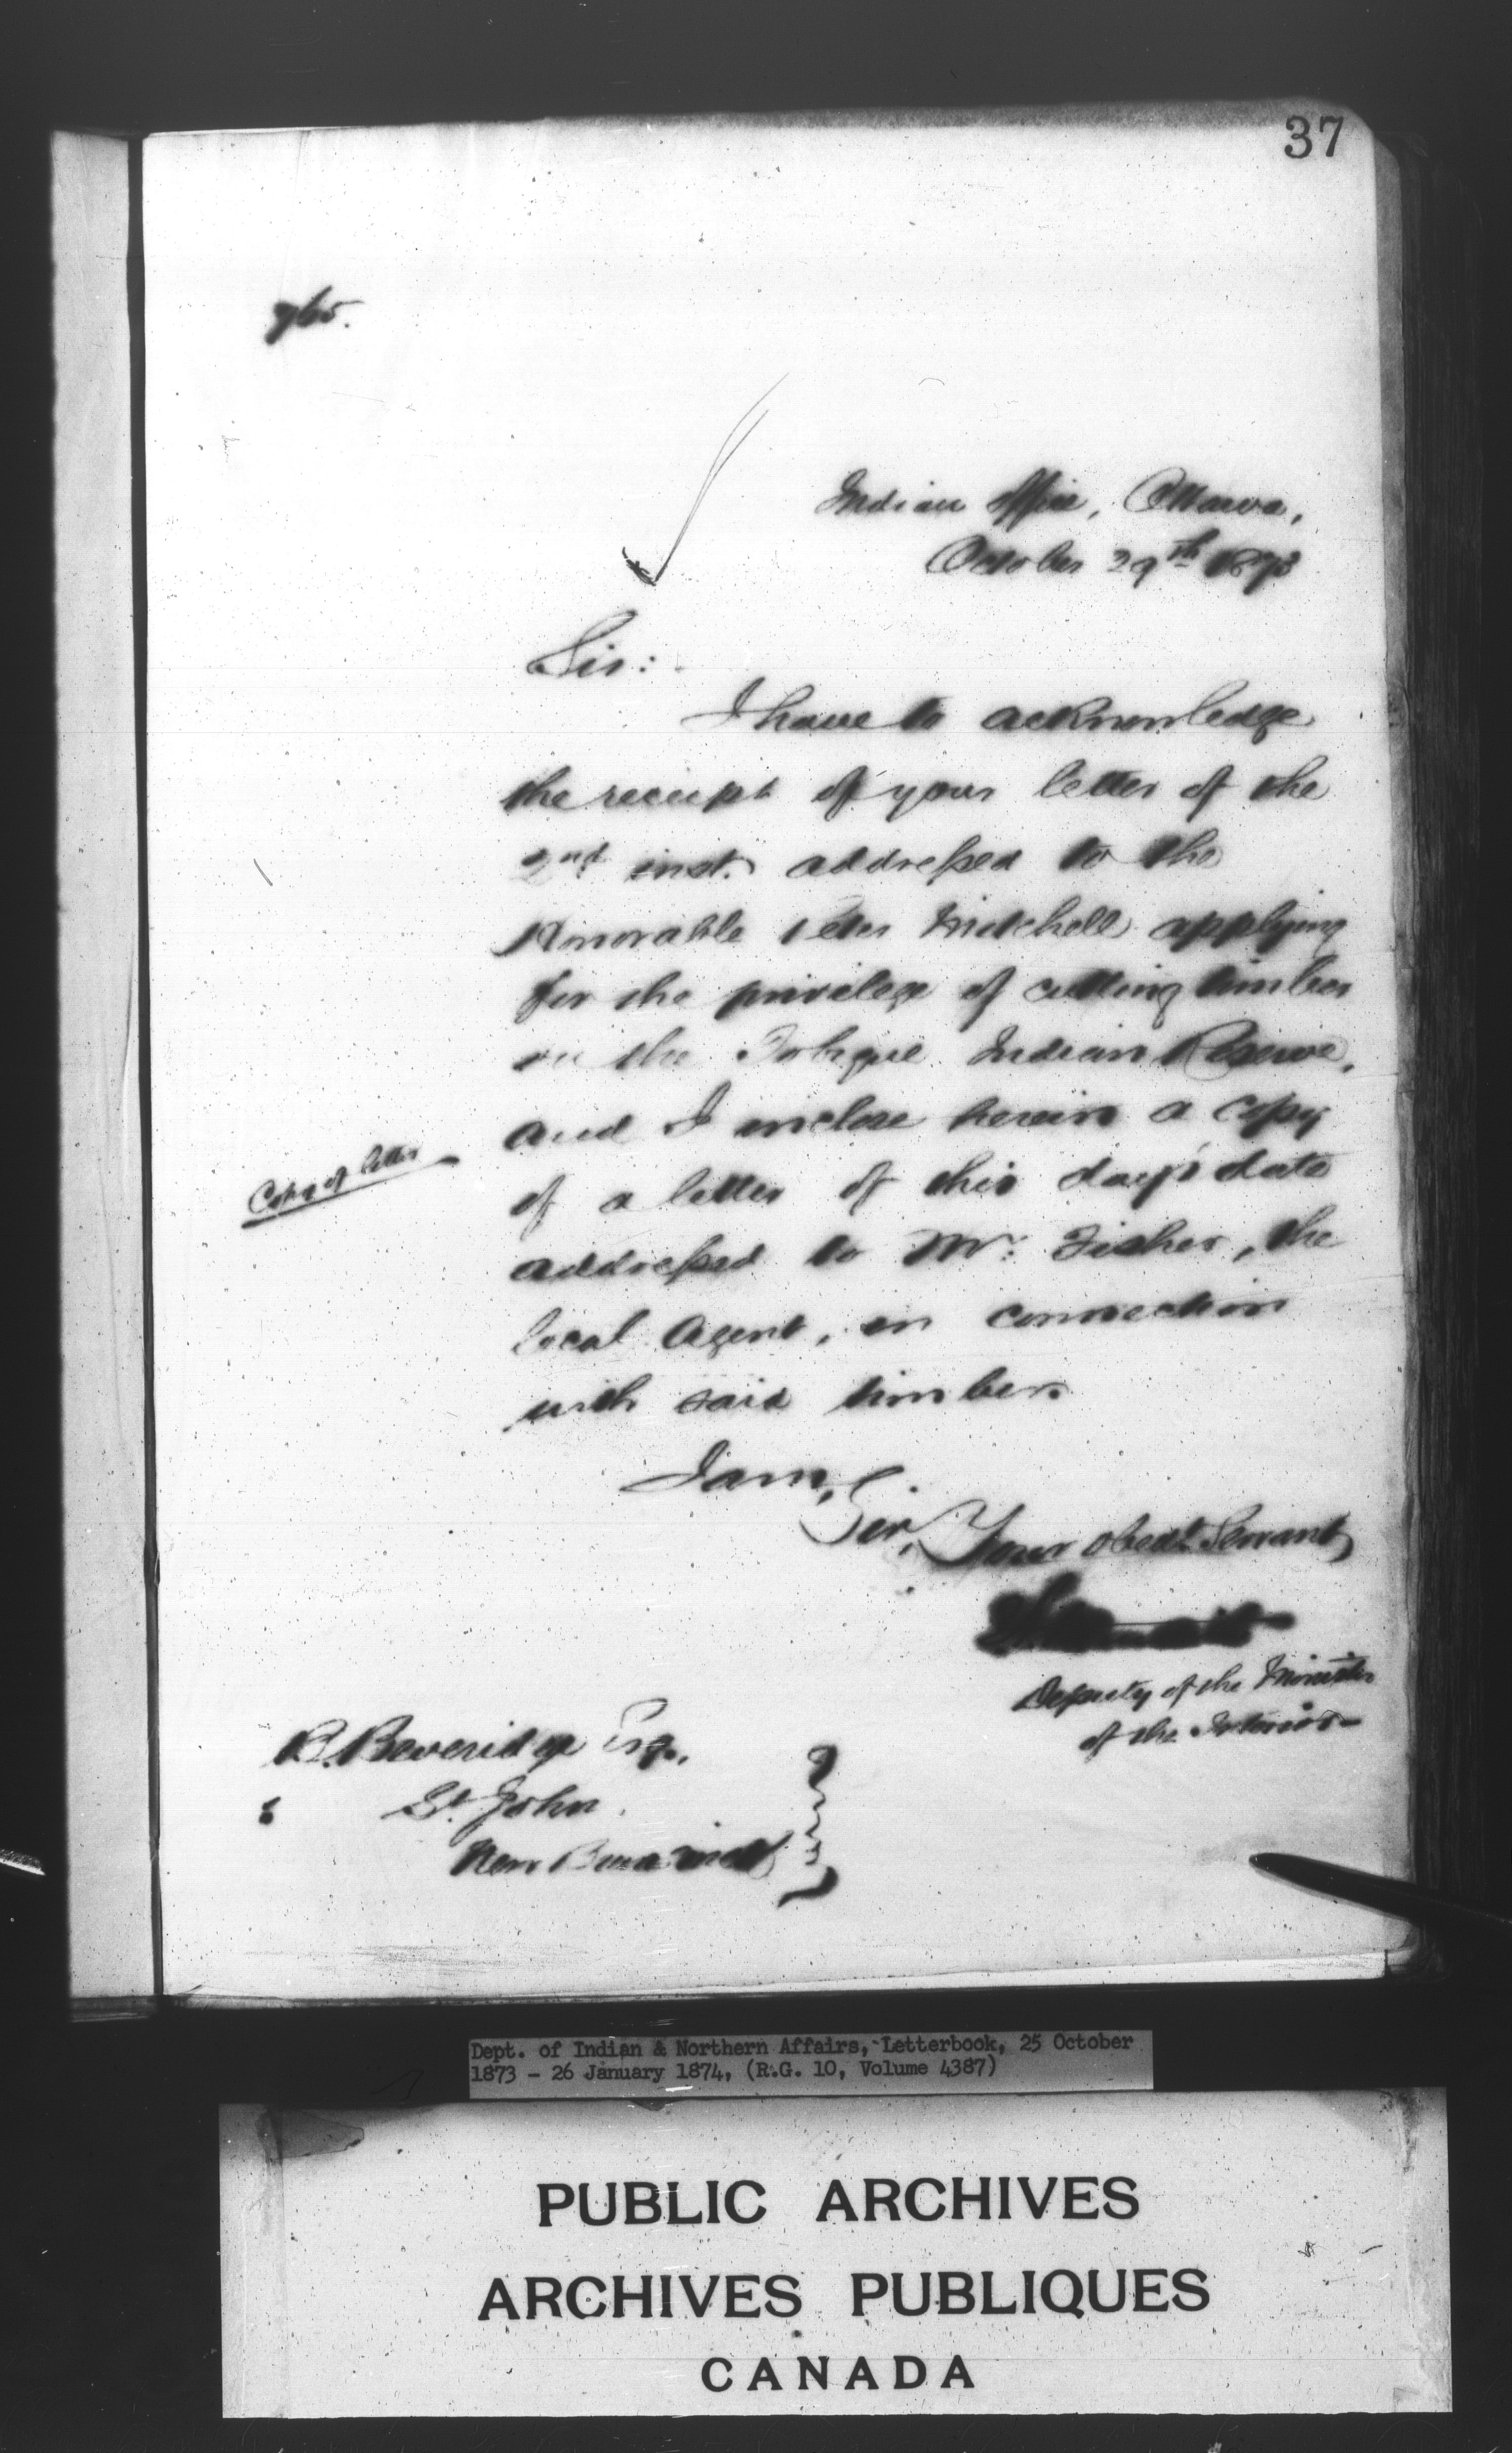 37
Indian Office, Ottawa,
October 29th 1873
Sir:
I have to acknowledge
the receipt of your letter of the
2nd inst. addressed to the
Honorable Peter Mitchell applying
for the privilege of cutting timber
on the Tobique Indian Reserve,
and I inclose herein a copy
Copy of letter
of a letter of this day's date
addressed to Mr. Fisher, the
local Agent, in connection
with said timber.
I am,
Sir,
Your obedt. Servant
Deputy of the Minister
of the Interior
B. Beveridge Esq.,
St. John.
New Brunswick
Dept. of Indian & Northern Affairs, Letterbook, 25 October
1873 - 26 January 1874, (R.G. 10, Volume 4387)
PUBLIC ARCHIVES
ARCHIVES PUBLIQUES
CANADA